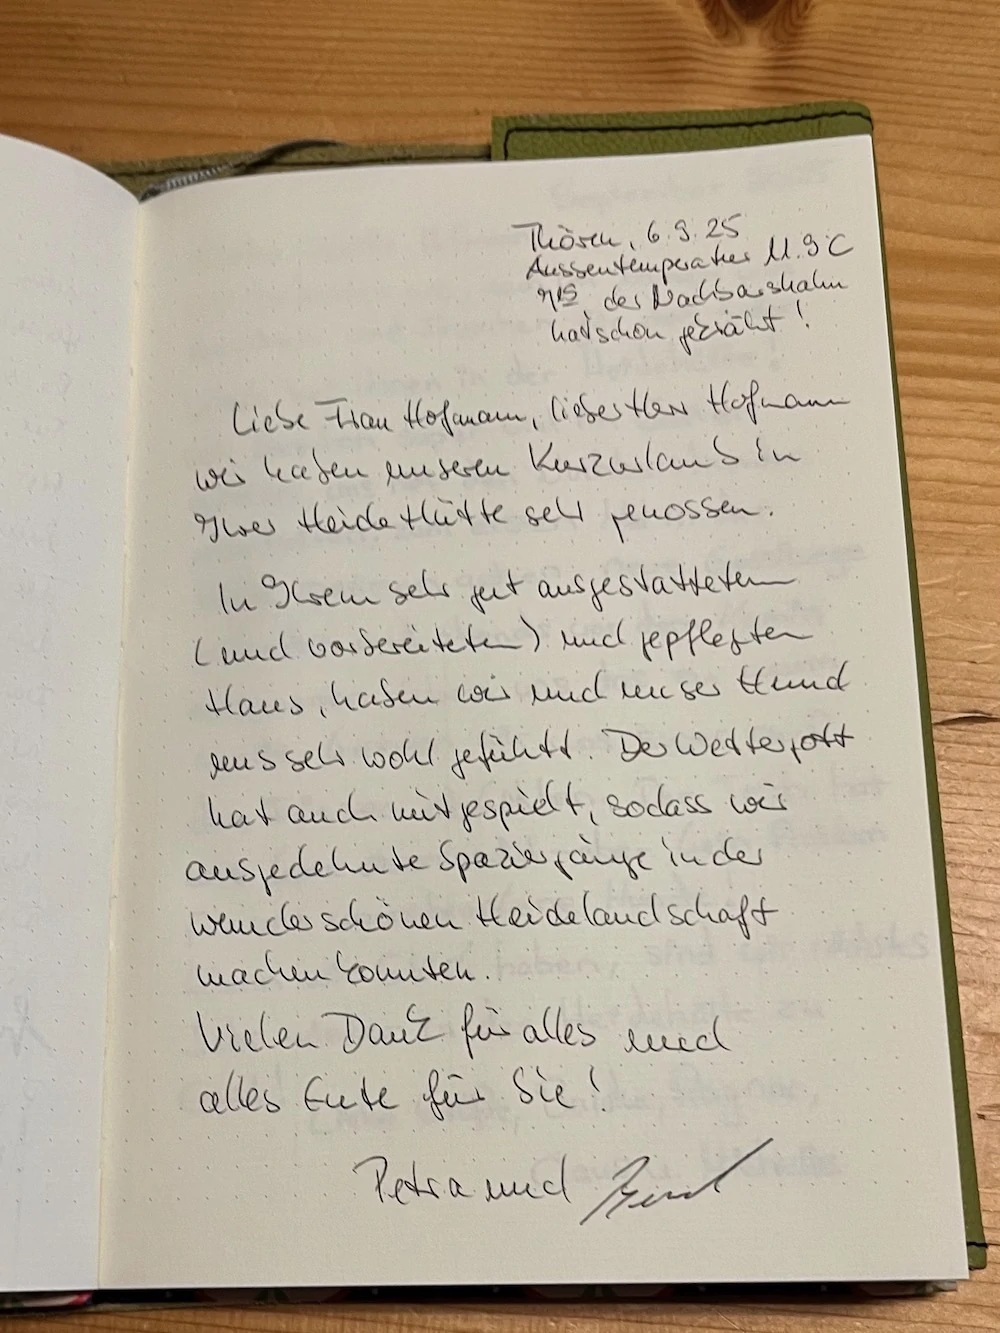 Thören, 6.9.25
Aussentemperatur 11.9°C
715 der Nachbarshahn
hat schon gekräht!
Liebe Frau Hofmann, lieber Herr Hofmann
wir haben unseren Kurzurlaub in
Ihrer HeideHütte sehr genossen.
In Ihrem sehr gut ausgestatteten
(und vorbereiteten) und gepflegten
Haus, haben wir und unser Hund
uns sehr wohl gefühlt. Der Wettergott
hat auch mitgespielt, sodass wir
ausgedehnte Spaziergänge in der
wunderschönen Heidelandschaft
machen konnten.
Vielen Dank für alles und
alles Gute für Sie!
Petra und